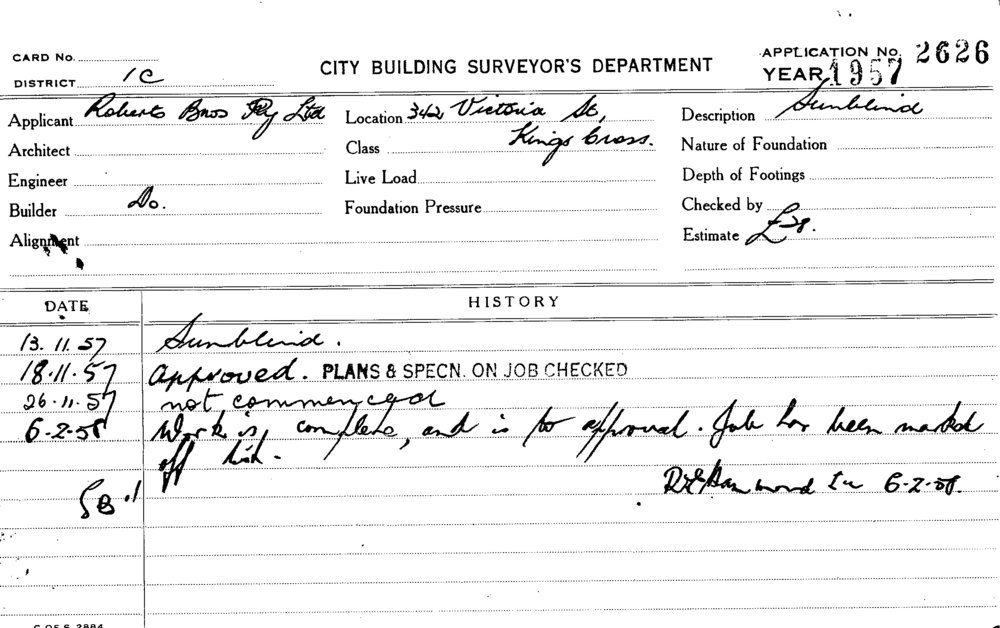 CARD No.
DISTRICT 1C
CITY BUILDING SURVEYOR'S DEPARTMENT
APPLICATION No. 2626
YEAR 1957
Applicant Roberts Bros Pty Ltd
Location 342 Victoria St,
Description Sunblind
Architect
Class Kings Cross.
Nature of Foundation
Engineer
Live Load
Depth of Footings
Builder Do.
Foundation Pressure
Checked by
Alignment
Estimate £28.
DATE
HISTORY
13.11.57 Sunblind.
18.11.57 approved. PLANS & SPECN. ON JOB CHECKED
26.11.57 not commenced
6-2-58 Work is complete, and is to approval. Job has been marked
off list.
Hammond 6-2-58.
C OF S 2884